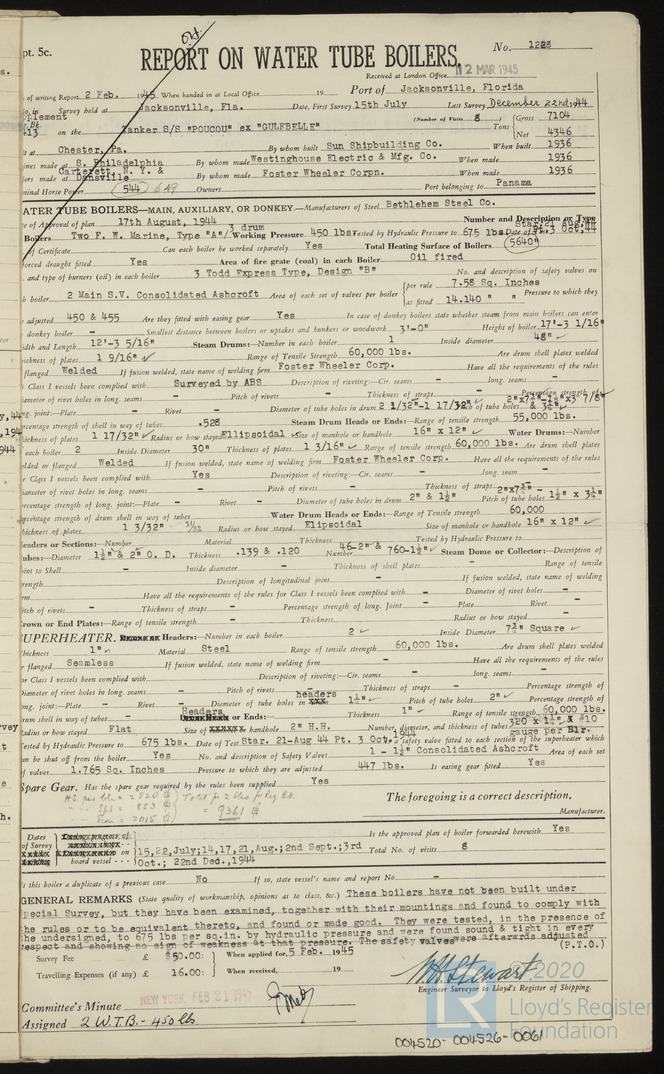 pt. 5c.
REPORT ON WATER TUBE BOILERS.
No. 1228
Received at London Office 12 MAR 1945
of writing Report 2 Feb. 1945 When handed in at Local Office 19 Port of Jacksonville, Florida
Survey held at Jacksonville, Fla. Date, First Survey 15th July Last Survey December 22nd, 44
on the Tanker S/S "POUCOU" ex "GULFBELLE" (Number of Visits 8) Tons Gross 7104 Net 4346
at Chester, Pa. By whom built Sun Shipbuilding Co. When built 1936
ines made at S. Philadelphia By whom made Westinghouse Electric & Mfg. Co. When made 1936
ers made at Carteret, N. Y. & Dansville By whom made Foster Wheeler Corpn. When made 1936
minal Horse Power 544 649 Owners Port belonging to Panama
WATER TUBE BOILERS—MAIN, AUXILIARY, OR DONKEY.—Manufacturers of Steel Bethlehem Steel Co.
of Approval of plan 17th August, 1944 Number and Description or Type
Boilers Two F. W. Marine, Type "A" 3 drum Working Pressure 450 lbs Tested by Hydraulic Pressure to 675 lbs Date of Star. 21 Aug. 44 Pt. 3 Oct. 44
of Certificate Can each boiler be worked separately Yes Total Heating Surface of Boilers 5640
forced draught fitted Yes Area of fire grate (coal) in each Boiler Oil fired
and type of burners (oil) in each boiler 3 Todd Express Type, Design "B" No. and description of safety valves on
boiler 2 Main S.V. Consolidated Ashcroft Area of each set of valves per boiler per rule 7.58 Sq. Inches as fitted 14.140 " " Pressure to which they
adjusted 450 & 455 Are they fitted with easing gear Yes In case of donkey boilers state whether steam from main boilers can enter
donkey boiler – Smallest distance between boilers or uptakes and bunkers or woodwork 3'-0" Height of boiler 17'-3 1/16"
Width and Length 12'-3 5/16" Steam Drums:—Number in each boiler 1 Inside diameter 48"
ickness of plates 1 9/16" Range of Tensile Strength 60,000 lbs. Are drum shell plates welded
flanged Welded If fusion welded, state name of welding firm Foster Wheeler Corp. Have all the requirements of the rules
Class I vessels been complied with Surveyed by ABS Description of riveting:—Cir. seams – long. seams –
ameter of rivet holes in long. seams – Pitch of rivets – Thickness of straps – Percentage strength of
ng. joint:—Plate – Rivet – Diameter of tube holes in drum 2 1/32"-1 17/32"
percentage strength of shell in way of tubes .528 Steam Drum Heads or Ends:—Range of tensile strength 55,000 lbs.
thickness of plates 1 17/32" Radius or how stayed Ellipsoidal Size of manhole or handhole 16" x 12" Water Drums:—Number
each boiler 2 Inside Diameter 30" Thickness of plates 1 3/16" Range of tensile strength 60,000 lbs. Are drum shell plates
welded or flanged Welded If fusion welded, state name of welding firm Foster Wheeler Corp. Have all the requirements of the rules
r Class I vessels been complied with Yes Description of riveting:—Cir. seams – long. seam –
ameter of rivet holes in long. seams – Pitch of rivets – Thickness of straps –
percentage strength of long. joint:—Plate – Rivet – Diameter of tube holes in drum 2" & 1½"
ercentage strength of drum shell in way of tubes – Water Drum Heads or Ends:—Range of Tensile strength 60,000
hickness of plates 1 3/32" Radius or how stayed Elipsoidal Size of manhole or handhole 16" x 12"
eaders or Sections:—Number – Material – Thickness – Tested by Hydraulic Pressure to –
ubes:—Diameter 1½" & 2" O. D. Thickness .139 & .120 Number 46-2" & 760-1½" Steam Dome or Collector:—Description of
oint to Shell – Inside diameter – Thickness of shell plates – Range of tensile
rength – Description of longitudinal joint – If fusion welded, state name of welding
rm – Have all the requirements of the rules for Class I vessels been complied with – Diameter of rivet holes –
itch of rivets – Thickness of straps – Percentage strength of long. Joint – Plate – Rivet –
rown or End Plates:—Range of tensile strength – Thickness – Radius or how stayed –
UPERHEATER. Headers:—Number in each boiler 2 Inside Diameter 7¾" Square
hickness 1" Material Steel Range of tensile strength 60,000 lbs. Are drum shell plates welded
r flanged Seamless If fusion welded, state name of welding firm – Have all the requirements of the rules
or Class I vessels been complied with – Description of riveting:—Cir. seams – long. seams –
iameter of rivet holes in long. seams – Pitch of rivets – Thickness of straps – Percentage strength of
ong. joint:—Plate – Rivet – Diameter of tube holes in headers 1¼" Pitch of tube holes 2" Percentage strength of
um shell in way of tubes – Headers or Ends:— Thickness 1" Range of tensile strength 60,000 lbs.
adius or how stayed Flat Size of handhole 2" H.H. Number, diameter, and thickness of tubes 320 x 1¼" x #10 gauge per Blr.
ested by Hydraulic Pressure to 675 lbs. Date of Test Star. 21-Aug 44 Pt. 3 Oct. 1944 a safety valve fitted to each section of the superheater which
an be shut off from the boiler Yes No. and description of Safety Valves 1 – 1½" Consolidated Ashcroft Area of each set
f valves 1.765 Sq. Inches Pressure to which they are adjusted 447 lbs. Is easing gear fitted Yes
Spare Gear. Has the spare gear required by the rules been supplied Yes
The foregoing is a correct description,
= 9361
Manufacturer.
Dates of Survey on board vessel 15,22,July;14,17,21,Aug,;2nd Sept.;3rd Oct.; 22nd Dec.,1944
Is the approved plan of boiler forwarded herewith Yes
Total No. of visits 8
s this boiler a duplicate of a previous case No If so, state vessel's name and report No. –
GENERAL REMARKS (State quality of workmanship, opinions as to class, &c.) These boilers have not been built under
pecial Survey, but they have been examined, together with their mountings and found to comply with
he rules or to be equivalent thereto, and found or made good. They were tested, in the presence of
he undersigned, to 675 lbs per sq.in. by hydraulic pressure and were found sound & tight in every
respect and showing no sign of weakness at that pressure. The safety valves were afterwards adjusted
(P.T.O.)
Survey Fee £ $50.00: When applied for, 5 Feb. 1945
Travelling Expenses (if any) £ 16.00: When received, 19
W.H. Stewart
Engineer Surveyor to Lloyd's Register of Shipping.
Committee's Minute NEW YORK FEB 21 1945
Assigned 2 W.T.B. - 450 lb
2020
LR
Lloyd's Register
Foundation
004520-004526-0061